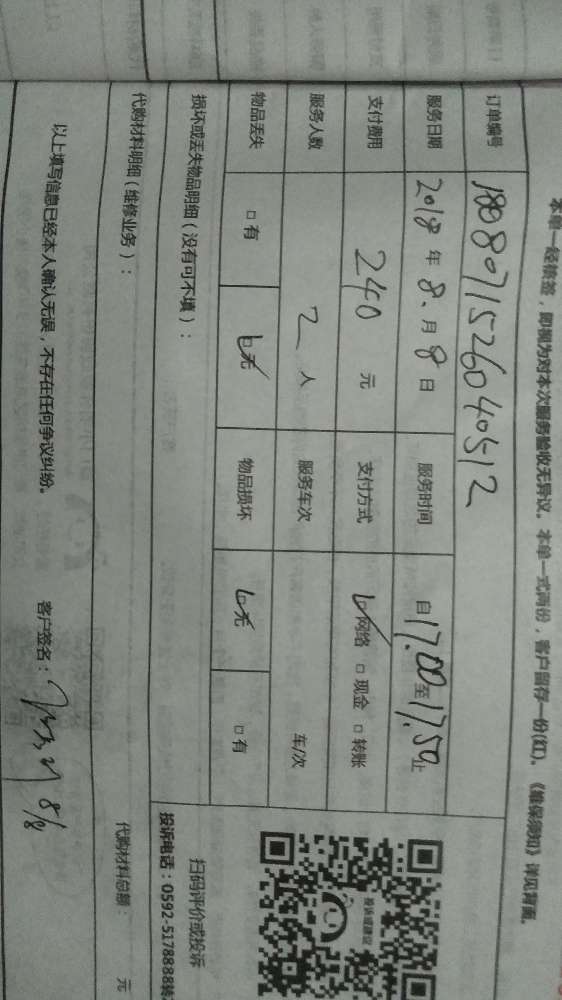 本单一经核签，即视为对本次服务验收无异议。本单一式两份，客户留存一份(红)。《维保须知》详见背面。
订单编号 180807152604051​2
服务日期 2018年8月8日 服务时间 自17:00至17:50止
支付费用 240元 支付方式 ☑网络 □现金 □转账
服务人数 2人 服务车次 车/次
物品丢失 □有 ☑无 物品损坏 ☑无 □有
损坏或丢失物品明细（没有可不填）：
代购材料明细（维修业务）： 代购材料总额： 元
以上填写信息已经本人确认无误，不存在任何争议纠纷。 客户签名： 8/8
投诉或建议
扫码评价或投诉
投诉电话：0592-5178888转